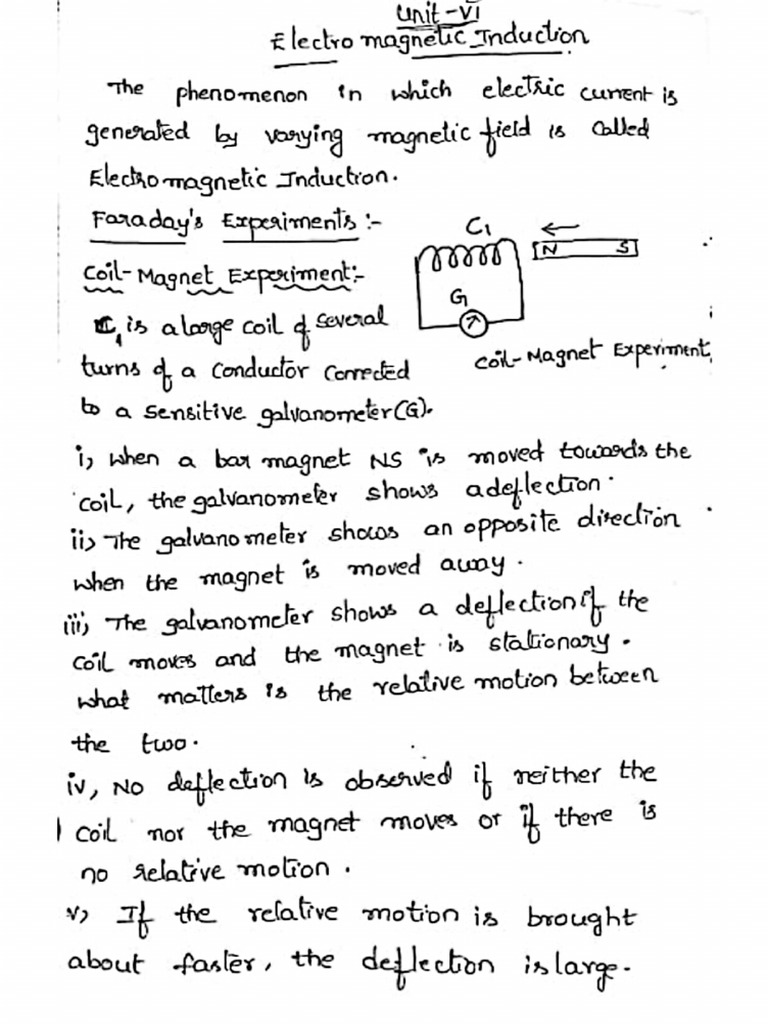 Unit-VI
Electro magnetic Induction
The phenomenon in which electric current is
generated by varying magnetic field is called
Electro magnetic Induction.
Faraday's Experiments :-
Coil-Magnet Experiment:-
C1
N S
G
Coil-Magnet Experiment
C1 is a large coil of several
turns of a conductor connected
to a sensitive galvanometer(G).
i, when a bar magnet NS is moved towards the
coil, the galvanometer shows a deflection.
ii, The galvanometer shows an opposite direction
when the magnet is moved away.
iii, The galvanometer shows a deflection if the
coil moves and the magnet is stationary.
what matters is the relative motion between
the two.
iv, No deflection is observed if neither the
coil nor the magnet moves or if there is
no relative motion.
v, If the relative motion is brought
about faster, the deflection is large.